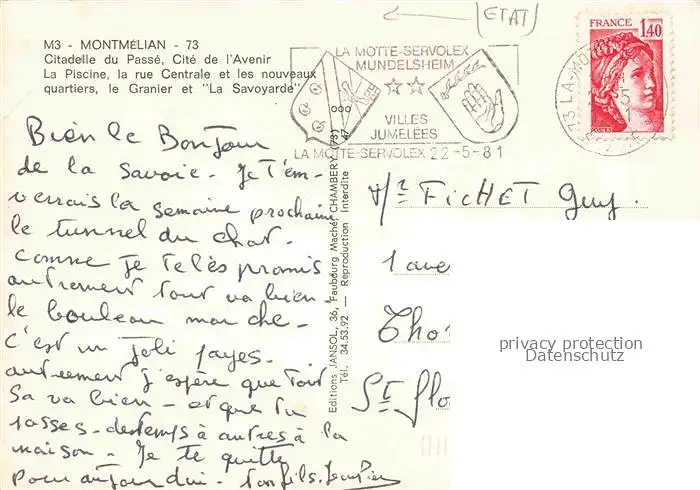 (ETAT)
M3 - MONTMÉLIAN - 73
Citadelle du Passé, Cité de l'Avenir
La Piscine, la rue Centrale et les nouveaux
quartiers, le Granier et "La Savoyarde"
LA MOTTE-SERVOLEX
MUNDELSHEIM
VILLES
JUMELÉES
LA MOTTE-SERVOLEX 22-5-81
FRANCE
1,40
POSTES
73 LA-MO
Bien le Bonjour
de la Savoie. Je t'em-
verrais la semaine prochaine
le tunnel du chat.
comme je te l'ès promis
autrement tout va bien
le bouleau marche.
c'est un joli payes.
autreement j'espère que tout
sa va bien - et que tu
passes. destemps à autres à la
maison. Je te quitte
pour aujourdui. ton fils. Jean Pier
Editions JANSOL, 36, Faubourg Maché, CHAMBERY (73)
Tél. 34.53.92 — Reproduction Interdite 47
FiCHET Guy.
1 ave
Tho
St Flo
privacy protection
Datenschutz